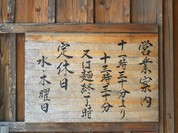 営業案内
十一時三十分より
十五時三十分
又は麺終了時
定休日
水・木曜日